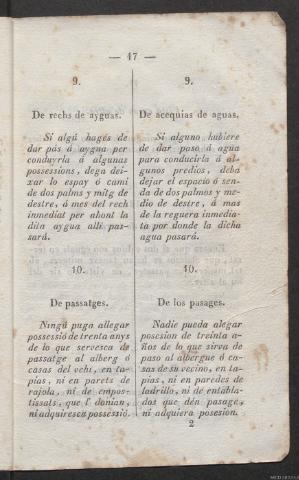 — 17 —
9.
De rechs de ayguas.
Si algú hagés de
dar pás á aygua per
conduyrla á algunas
possessions, dega dei-
xar lo espay ó camí
de dos palms y mitg de
destre, á mes del rech
inmediat per ahont la
dita aygua allí pas-
sará.
10.
De passatges.
Ningú puga allegar
possesió de trenta anys
de lo que servesca de
passatge al alberg ó
casas del vehí, en ta-
pias, ni en parets de
rajola, ni de empos-
tissats, que l' donian,
ni adquiresca possessió.
9.
De acequias de aguas.
Si alguno hubiere
de dar paso á agua
para conducirla á al-
gunos predios, deba
dejar el espacio ó sen-
da de dos palmos y me-
dio de destre, á mas
de la reguera inmedia-
ta por donde la dicha
agua pasará.
10.
De los pasages.
Nadie pueda alegar
posesion de treinta a-
ños de lo que sirva de
paso al albergue ó ca-
sas de su vecino, en ta-
pias, ni en paredes de
ladrillo, ni de entabla-
dos que dén pasage,
ni adquiera posesion.
2